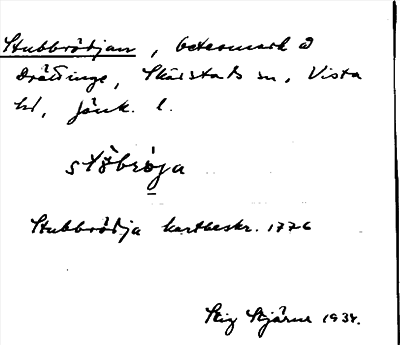 Stubbrödjan, betesmark å
Drättinge, Skärstads sn, Vista
hd, Jönk. l.
stʹöbrö̀ja
Stubbrödja kartbeskr. 1776
Stig Stjärne 1934.